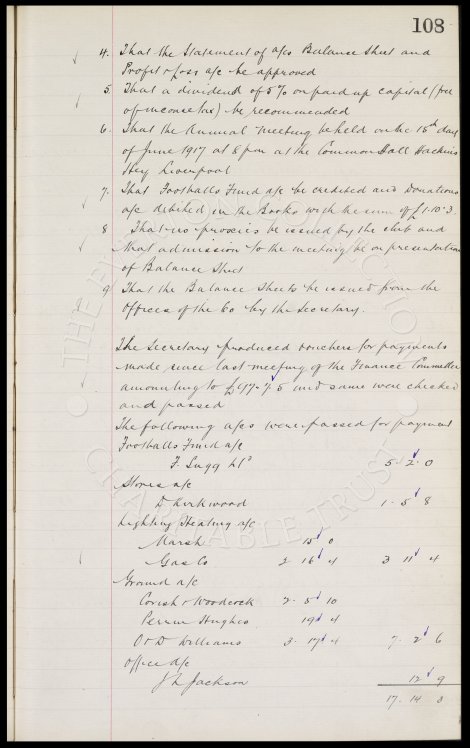 108
4. That the Statement of a/cs Balance Sheet and
Profit & Loss a/c be approved
5. That a dividend of 5% on paid up capital (free
of income tax) be recommended
6. That the Annual meeting be held on the 15th day
of June 1917 at 8 pm at the Common Hall Hackins
Hey Liverpool
7. That Footballs Fund a/c be credited and Donations
a/c debited in the Books with the sum of £1.10.3
8 That no proxies be issued by the club and
that admission to the meeting be on presentation
of Balance Sheet
9 That the Balance Sheets be issued from the
Offices of the Co by the Secretary.
The Secretary produced vouchers for payments
made since last meeting of the Finance Committee
amounting to 7. 5 and same were checked
and passed
The following a/cs were passed for payment
Footballs Fund a/c
F. Sugg Ltd 5. 2. 0
Stores a/c
D Kirkwood 1. 5. 8
Lighting Heating a/c
Marsh 15. 0
Gas Co 2. 16. 4 3. 11. 4
Ground a/c
Corish & Woodcock 2. 5. 10
Hughes 19. 4
O & D Williams 3. 17. 4 7. 2. 6
Office a/c
Jackson 12. 9
17. 14. 3
THE EVERTON COLLECTION
CHARITABLE TRUST